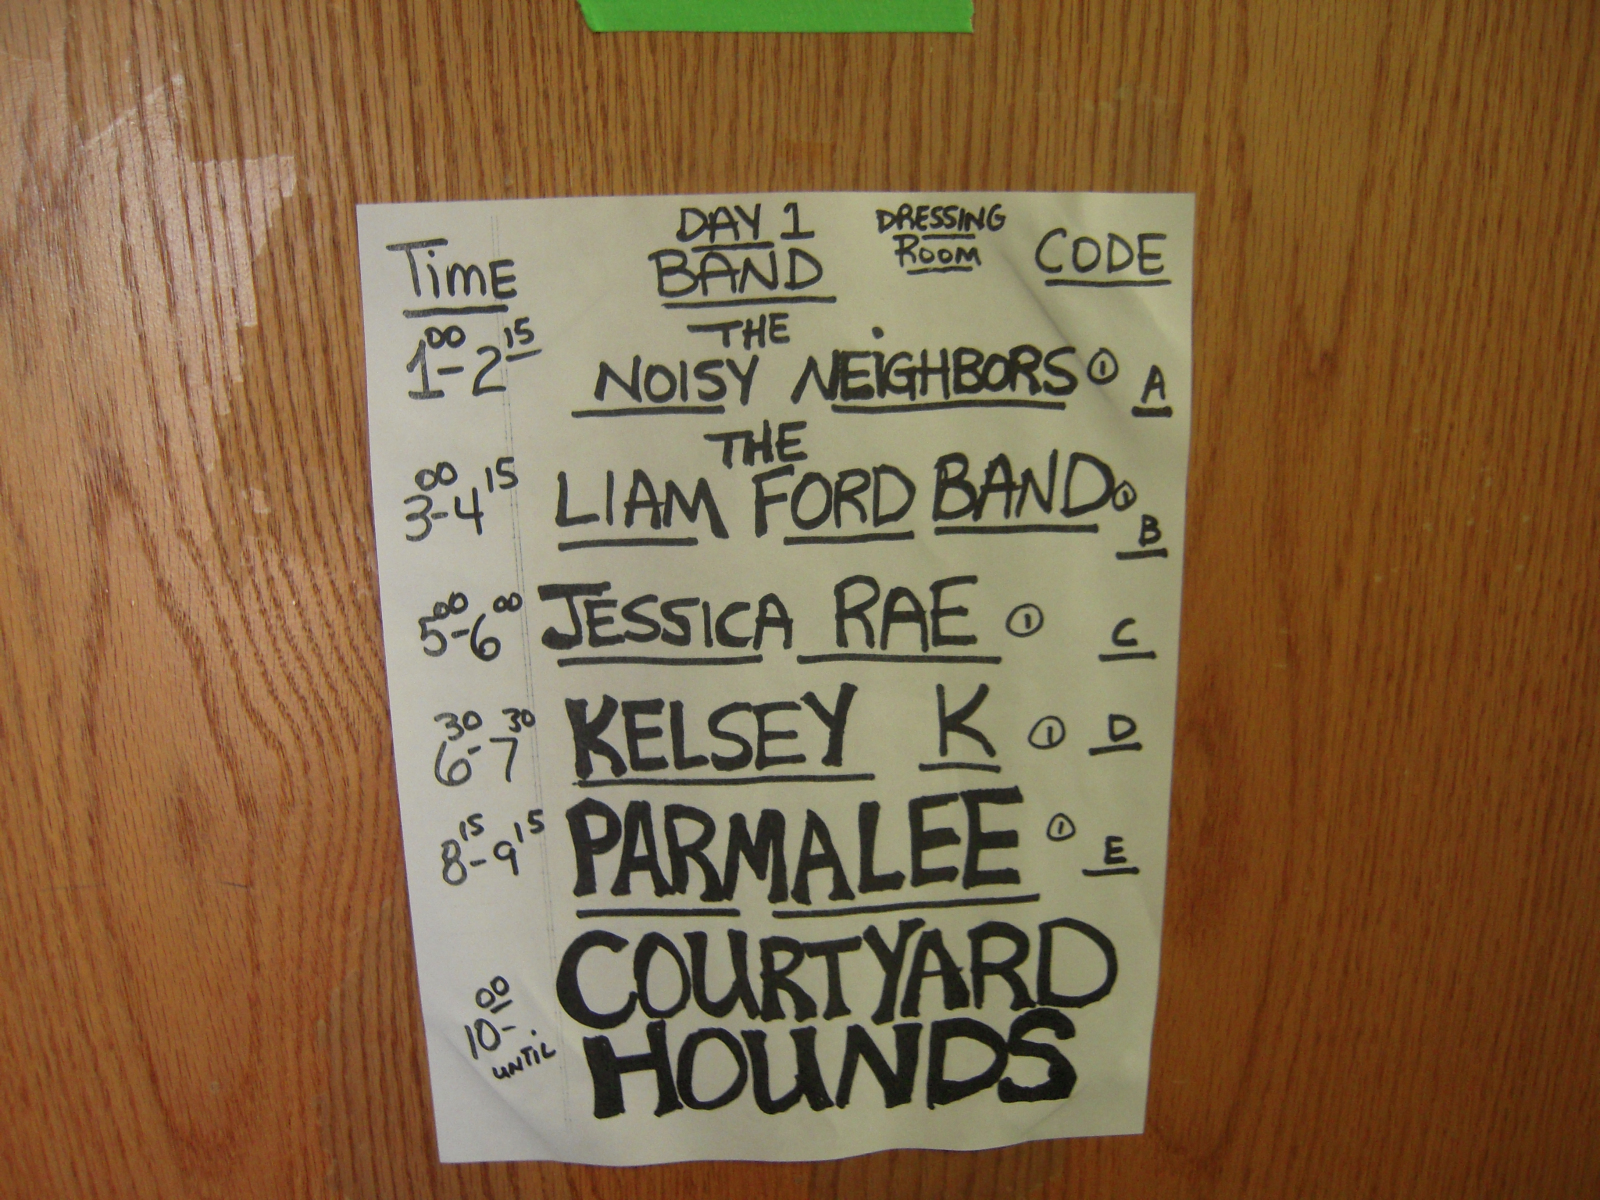 DAY 1
Time BAND DRESSING ROOM CODE
THE
1:00-2:15 NOISY NEIGHBORS ① A
THE
3:00-4:15 LIAM FORD BAND ① B
5:00-6:00 JESSICA RAE ① C
6:30-7:30 KELSEY K ① D
8:15-9:15 PARMALEE ① E
COURTYARD
10:00- UNTIL HOUNDS